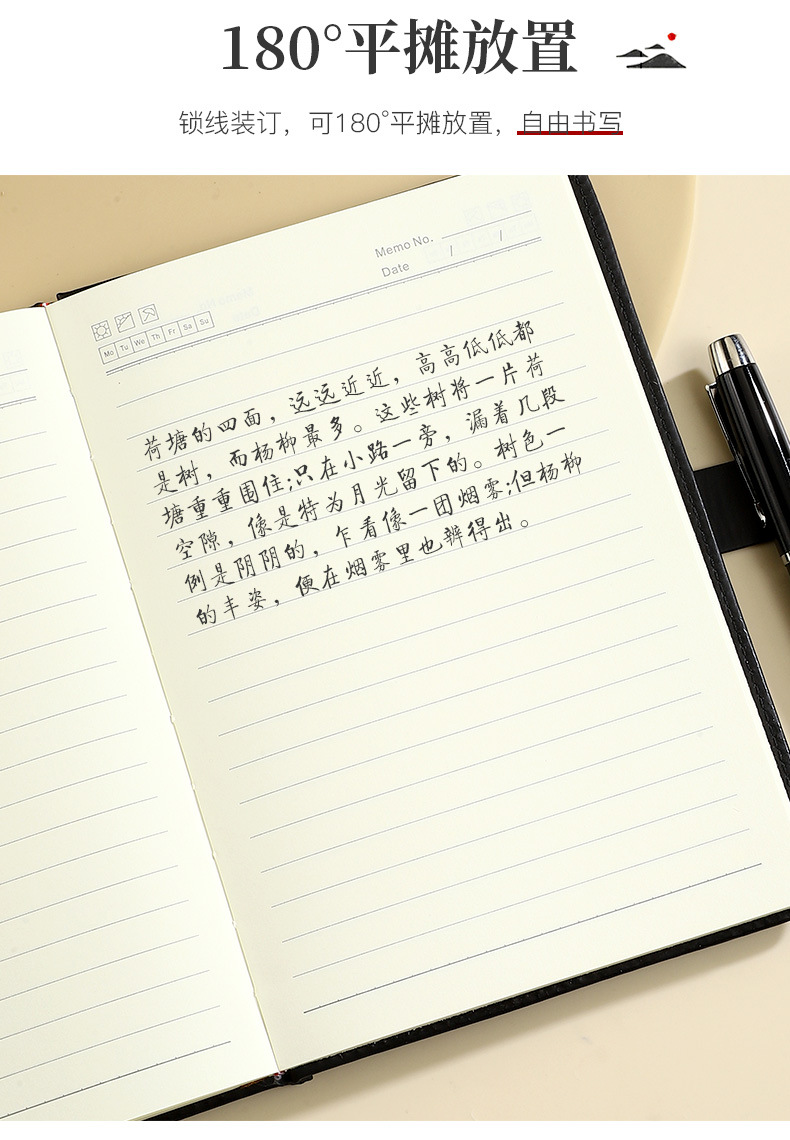 180°平摊放置
锁线装订，可180°平摊放置，自由书写
Memo No.
Date / /
Mo Tu We Th Fr Sa Su
荷塘的四面，远远近近，高高低低都
是树，而杨柳最多。这些树将一片荷
塘重重围住;只在小路一旁，漏着几段
空隙，像是特为月光留下的。树色一
例是阴阴的，乍看像一团烟雾;但杨柳
的丰姿，便在烟雾里也辨得出。